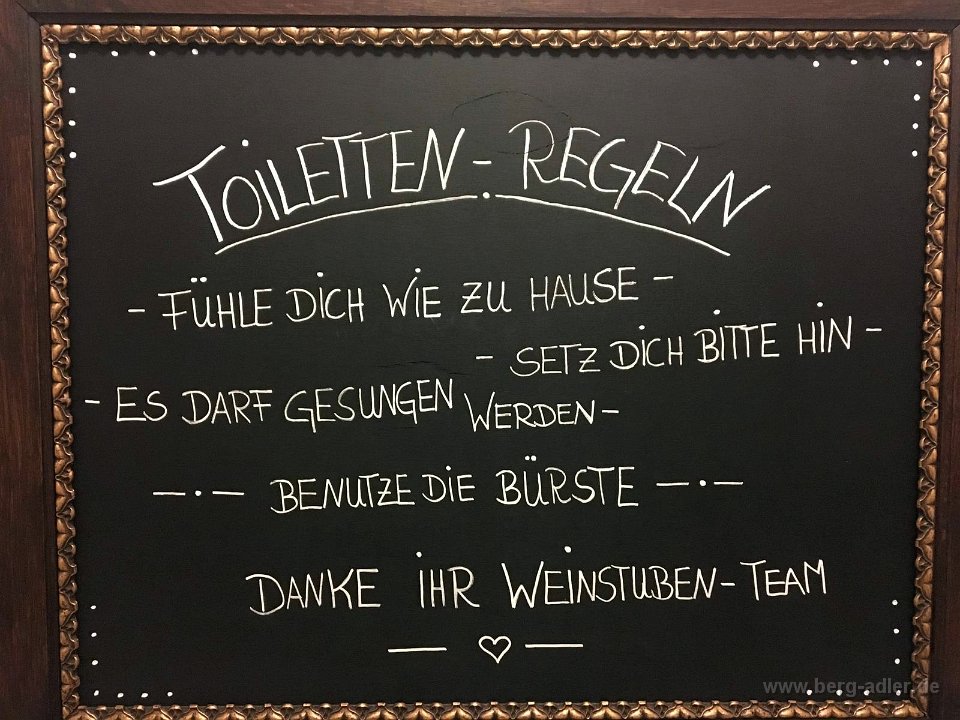 TOiLETTEN - REGELN
- FÜHLE DiCH WiE ZU HAUSE -
- SETZ DiCH BiTTE HiN -
- ES DARF GESUNGEN WERDEN -
— · — BENUTZE DiE BÜRSTE — · —
DANKE iHR WEiNSTUBEN-TEAM
— ♡ —
www.berg-adler.de